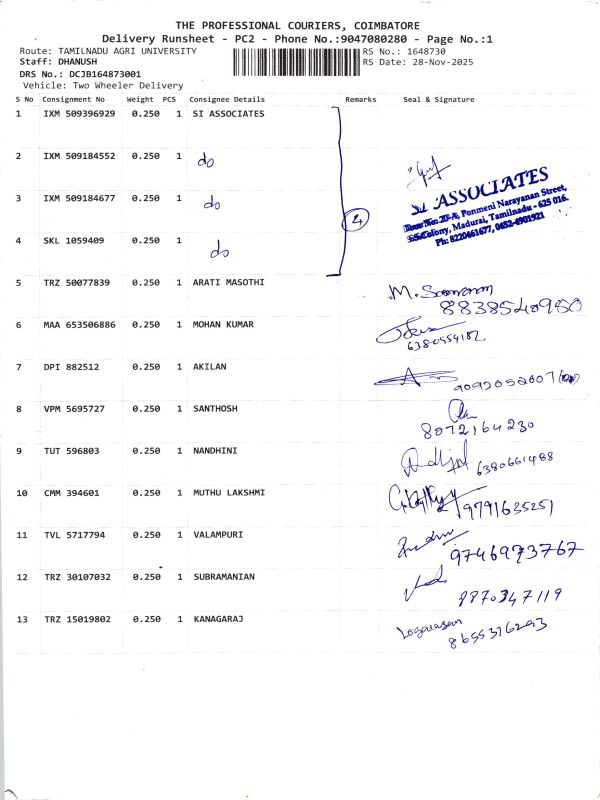 THE PROFESSIONAL COURIERS, COIMBATORE
Delivery Runsheet - PC2 - Phone No.:9047080280 - Page No.:1
Route: TAMILNADU AGRI UNIVERSITY RS No.: 1648730
Staff: DHANUSH RS Date: 28-Nov-2025
DRS No.: DCJB164873001
Vehicle: Two Wheeler Delivery
S No Consignment No Weight PCS Consignee Details Remarks Seal & Signature
1 IXM 509396929 0.250 1 SI ASSOCIATES
2 IXM 509184552 0.250 1 do
3 IXM 509184677 0.250 1 do
4 SKL 1059409 0.250 1 do
ASSOCIATES
Ponmeni Narayanan Street,
Colony, Madurai, Tamilnadu - 625 016.
Ph: 8220461677, 0452-4901921
5 TRZ 50077839 0.250 1 ARATI MASOTHI
8838540950
6 MAA 653506886 0.250 1 MOHAN KUMAR
6380554182
7 DPI 882512 0.250 1 AKILAN
9092052007
8 VPM 5695727 0.250 1 SANTHOSH
8072164230
9 TUT 596803 0.250 1 NANDHINI
6380661488
10 CMM 394601 0.250 1 MUTHU LAKSHMI
9791635251
11 TVL 5717794 0.250 1 VALAMPURI
9746973767
12 TRZ 30107032 0.250 1 SUBRAMANIAN
8870347119
13 TRZ 15019802 0.250 1 KANAGARAJ
8655376293